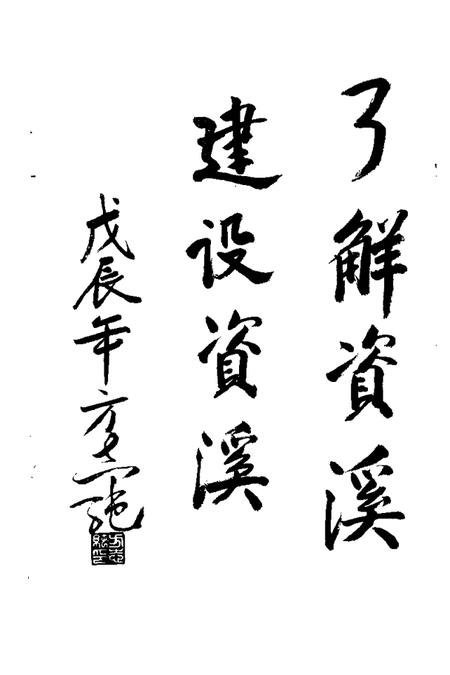 了解資溪
建设資溪
戊辰年方志純